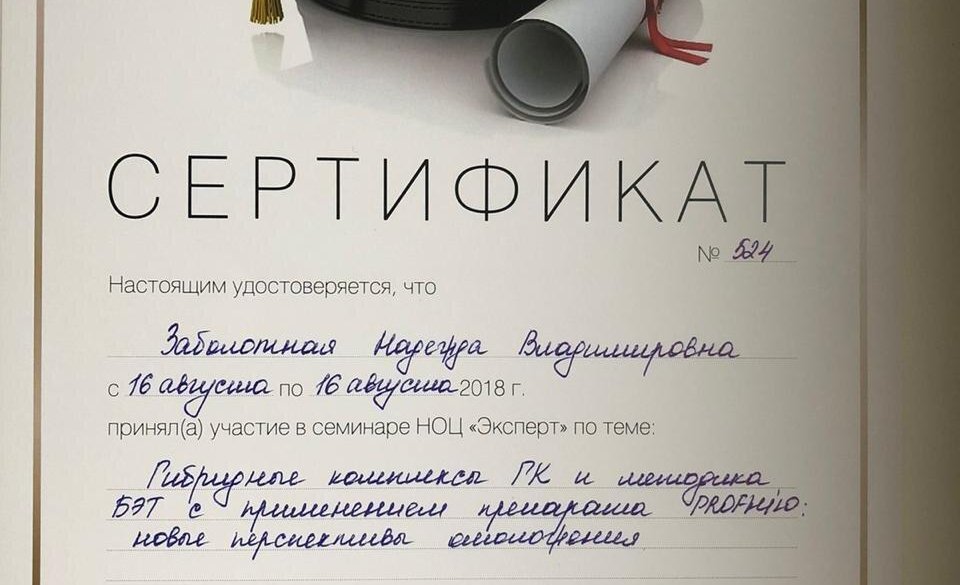 СЕРТИФИКАТ
№ 524
Настоящим удостоверяется, что
Заболотная Надежда Владимировна
с 16 августа по 16 августа 2018 г.
принял(а) участие в семинаре НОЦ «Эксперт» по теме:
Гибридные комплексы ГК и методика
БЭТ с применением препарата PROFHILO:
новые перспективы омоложения